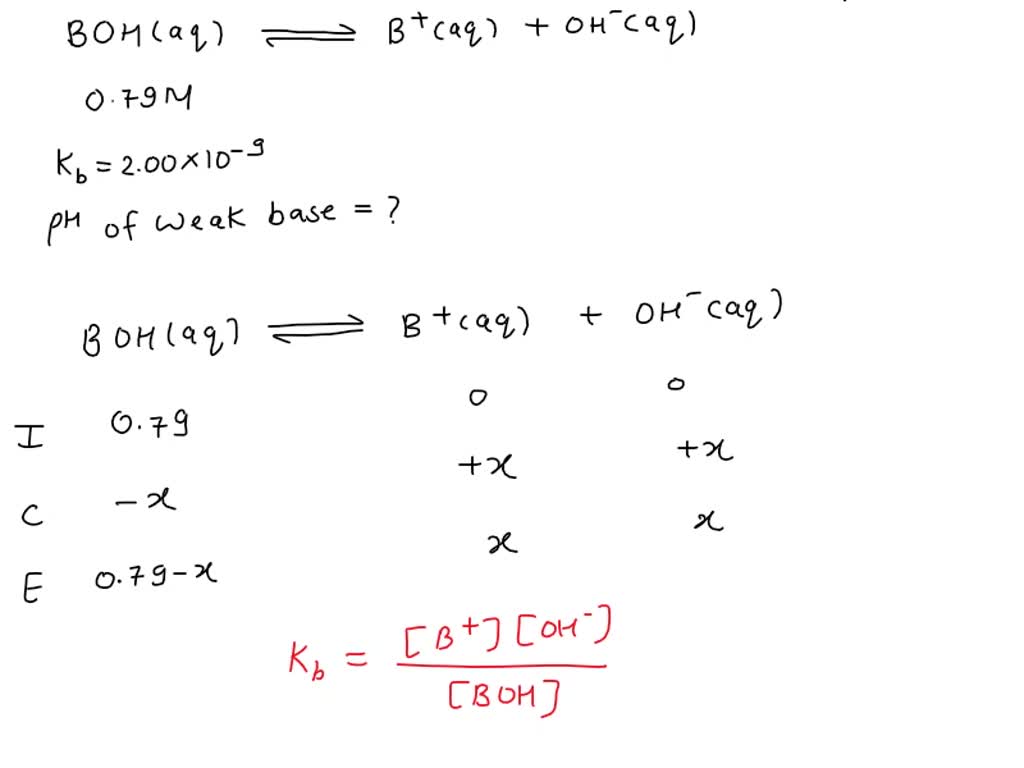 BOH(aq) ⇌ B⁺(aq) + OH⁻(aq)
0.79M
Kb = 2.00×10⁻⁹
pH of weak base = ?
BOH(aq) ⇌ B⁺(aq) + OH⁻(aq)
I 0.79 0 0
C -x +x +x
E 0.79-x x x
Kb = [B⁺][OH⁻] / [BOH]